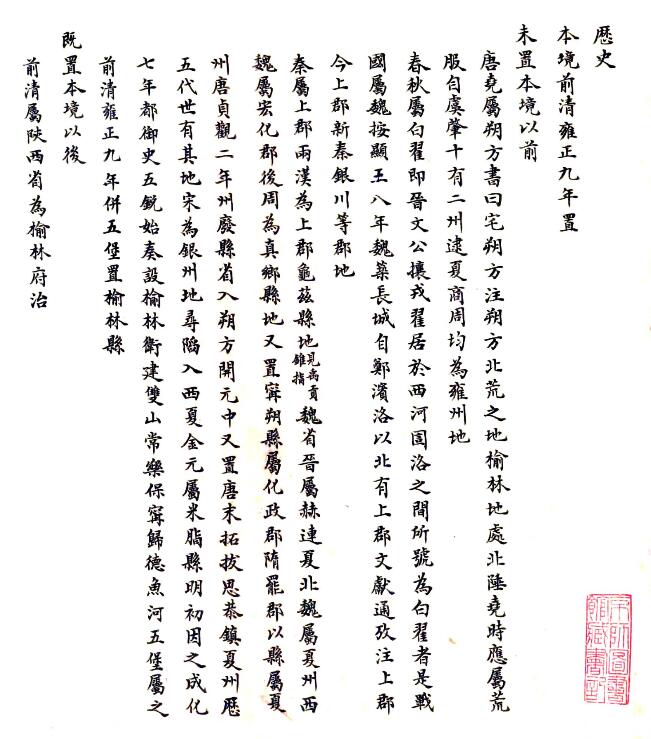 歷史
本境前清雍正九年置
未置本境以前
唐堯屬朔方書曰宅朔方注朔方北荒之地榆林地處北陲堯時應屬荒
服自虞肇十有二州逮夏商周均為雍州地
春秋屬白翟即晉文公攘戎翟居於西河圁洛之間所號為白翟者是戰
國屬魏按顯王八年魏築長城自鄭濱洛以北有上郡文獻通攷注上郡
今上郡新秦銀川等郡地
秦屬上郡兩漢為上郡龜茲縣地見禹貢錐指魏省晉屬赫連夏北魏屬夏州西
魏屬宏化郡後周為真鄉縣地又置寧朔縣屬化政郡隋罷郡以縣屬夏
州唐貞觀二年州廢縣省入朔方開元中又置唐末拓拔思恭鎮夏州歷
五代世有其地宋為銀州地尋陷入西夏金元屬米脂縣明初因之成化
七年都御史五銳始奏設榆林衛建雙山常樂保寧歸德魚河五堡屬之
前清雍正九年併五堡置榆林縣
既置本境以後
前清屬陝西省為榆林府治